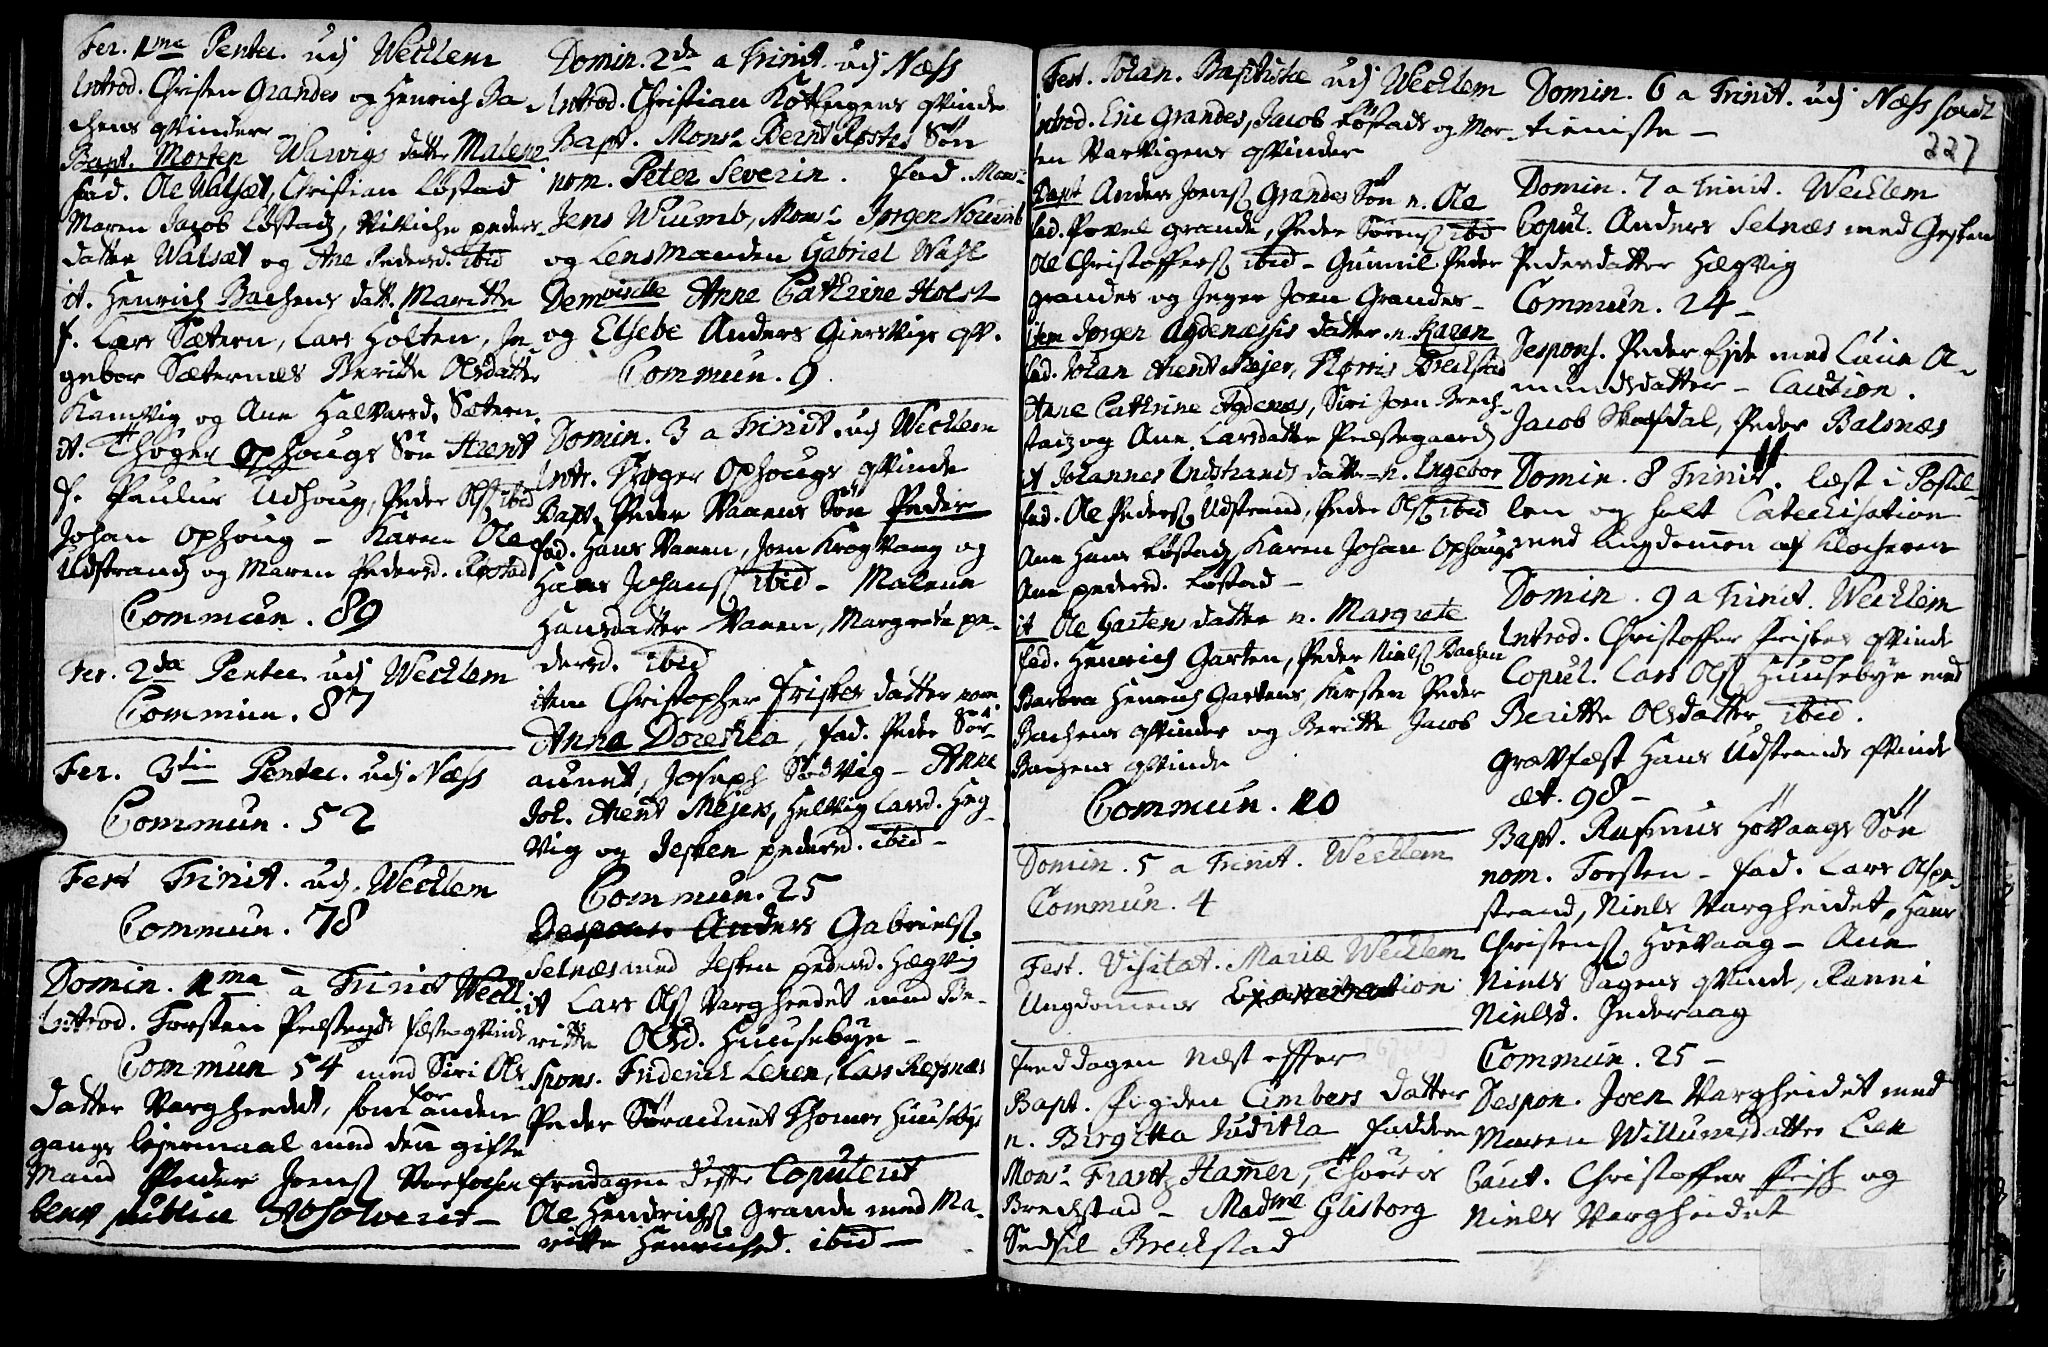 Fer. 1me Pentec. udj Wedlem
Introd. Christen Grandes og Henrich Ba-
chens qvinder
Bapt. Morten Warvigs datter Malene
fad. Ole Walsæt, Christian Løstad
Maren Jacob Løstads, Villiche peders
datter Walsæt og Ane Pedersd. ibid
it. Henrich Bachens datt. Maritte
f. Lars Sætern, Lars Holten, In-
gebor Sæternes Beritte Olsdatter
Kamvig og Ane Halvarsd. Sætern.
it. Thøger Ophougs Søn Arent
f. Paulus Udhoug, Peder Ols. ibid
Johan Ophoug - Karen Ole
Udstrand og Maren Pedersd. Røstad
Commun. 89
Fer. 2da Pentec. udj Wedlem
Commun. 87
Fer. 3tia Pentec. udj Næss
Commun. 52
Fest Trinit. udj. Wedlem
Commun. 78
Domin. 1ma a Trinit Wedl.
Introd. Torsten Præstegds fæsteqvinde
Commun 54 med Siri Ols
datter Vargheedet, som for anden
gangs lejermaal med den gifte
Mand Peder Joens
blev publice Absolveret
Domin. 2da a Trinit. udj Næss
Introd. Christian Køtlngens qvinde
Bapt. Monsr Berndt Røstes Søn
nom. Peter Severin. fad. Monsr
Jens Wiumb, Monsr Jørgen
og Lensmanden Gabriel Wasl
Demoiselle Anne Cathrine Holst
og Elsebe Anders Giersvigs qv.
Commun. 9
Domin. 3 a Trinit. udj Wedlem
Intr. Thøger Ophougs qvinde
Bapt. Peder Vanens Søn Peder
fad. Hans Vanen, Joen Krogvaag og
Hans Johans. ibid - Malene
Hansdatter Vanen, Margrete pe-
dersd. ibid
item Christopher Friskes datter nom
Anna Dorethea, fad. Peder Sør-
aunet, Joseph Sødvig - Anne
Joh. Arent Mejers, Helvig Larsd. Heg-
vig og Jesken pedersd. ibid
Commun. 25
Despons. Anders Gabriels.
Selnæs med Jesken pedersd. Hægvig
it Lars Ols. Vargheedet med Be-
ritte Olsd. Huusebye -
Spons. Friderich Leken, Lars Refsnæs
Peder Søraunet Thomes Huusebye
fredagen dets Copuleret
Ole Hendrichs. Grande med Ma-
ritte Henrichsd. ibid
Fest. Johan. Baptistæ udj Wedlem
Introd. Eric Grandes, Jacob Løstads og Mor-
ten Varvigens qvinder
Bapt Anders Joens. Grandes Søn n. Ole
fad. Povel grande, Peder Sørens. ibid
Ole Christoffers. ibid - Gunnil Peder
grandes og Inger Joen Grandes -
item Jørgen Agdenæssis datter n. Karen
fad. Johan Arent Mejer, Thørris Breckstad
Anne Cathrine Agdenæs, Siri Joen Brech-
stad og Ane Larsdatter Præstegaard
it Johannes Indstrands datter n. Ingebor
fad. Ole Peders. Udstrand, Peder Ols. ibid
Ane Hans Løstads, Karen Johan Ophougs
Ane pedersd. Løstad -
it Ole Garten datter n. Margrete
fad. Henrich Garten, Peder Niels. Bachen
Barbra Henrich Gartens, Kirsten Peder
Bachens qvinder og Beritte Jacob
Bachens qvinde
Commun. 20
Domin. 5 a Trinit. Wedlem
Commun. 4
Fest. Visitat. Mariæ Wedlem
Ungdomens Examination
freddagen næst effter
Bapt. Cimbers datter
n. Birgitta Juditha fadder
Monsr Frantz Hamer, Thørris
Breckstad - Madme Glisborg
Sedsil Breckstad
Domin. 6 a Trinit. udj Næss
tieniste -
227
Domin. 7 a Trinit. Wedlem
Copul. Anders Selnæs med Gesken
Pedersdatter Hægvig
Commun. 24 -
Despons. Peder Eide med Lucie A-
mundsdatter - Caution.
Jacob Skafdal, Peder Balsnæs
Domin. 8 Trinit. læst i Postil-
len og holt Catechisation
med Ungdomen af Klocheren
Domin. 9 a Trinit. Wedlem
Introd. Christoffer Friskes qvinde
Copul. Lars Ols. Huusebye med
Beritte Olsdatter ibid.
Gravfæst Hans Udstrands qvinde
æt. 98 -
Bapt. Rasmus Høvaags Søn
nom. Torsten - fad. Lars
strand, Niels Vargheidet, Hans
Christens. Høevaag - Ane
Niels Sagens qvinde, Ranni
Nielsd. Inderaag
Commun. 25 -
Despon. Joen Vargheidet med
Maren Willumsdatter Lien
Caut. Christoffer Frisk og
Niels Vargheidet